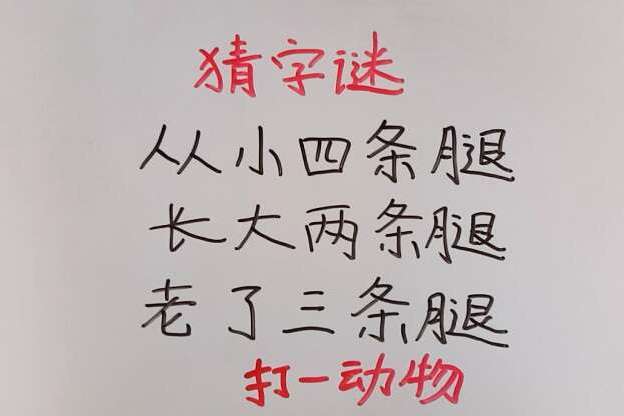 猜字谜
从小四条腿
长大两条腿
老了三条腿
打一动物